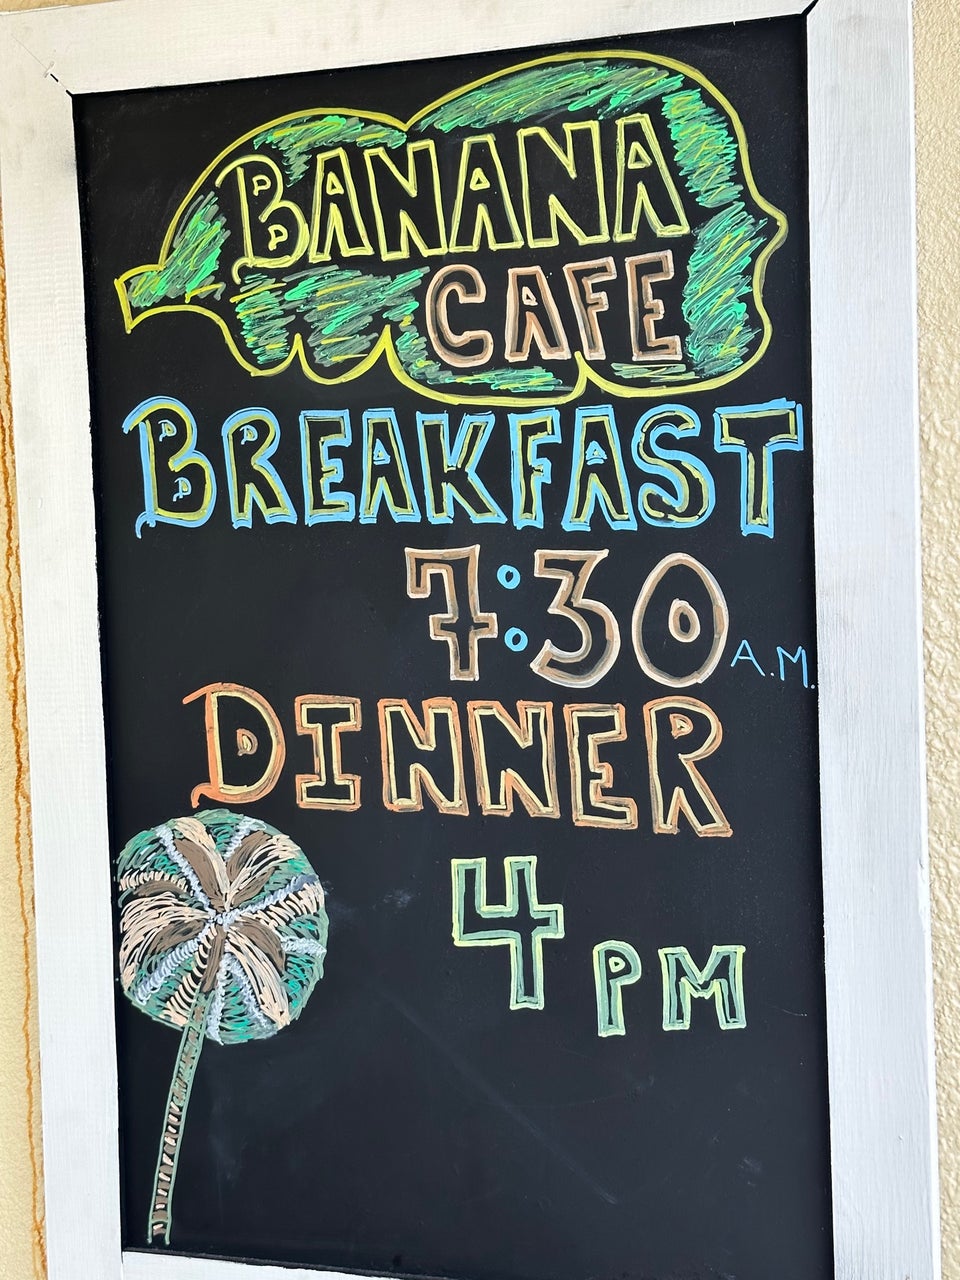 BANANA
CAFE
BREAKFAST
7:30 A.M.
DINNER
4 PM